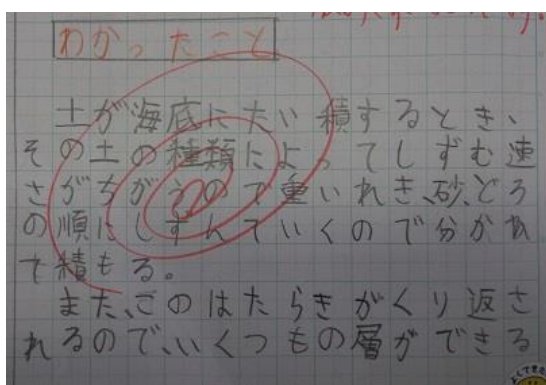 わかったこと
土が海底にたい積するとき、
その土の種類によってしずむ速
さがちがうので重いれき、砂、どろ
の順にしずんでいくので分かれ
て積もる。
また、このはたらきがくり返さ
れるので、いくつもの層ができる